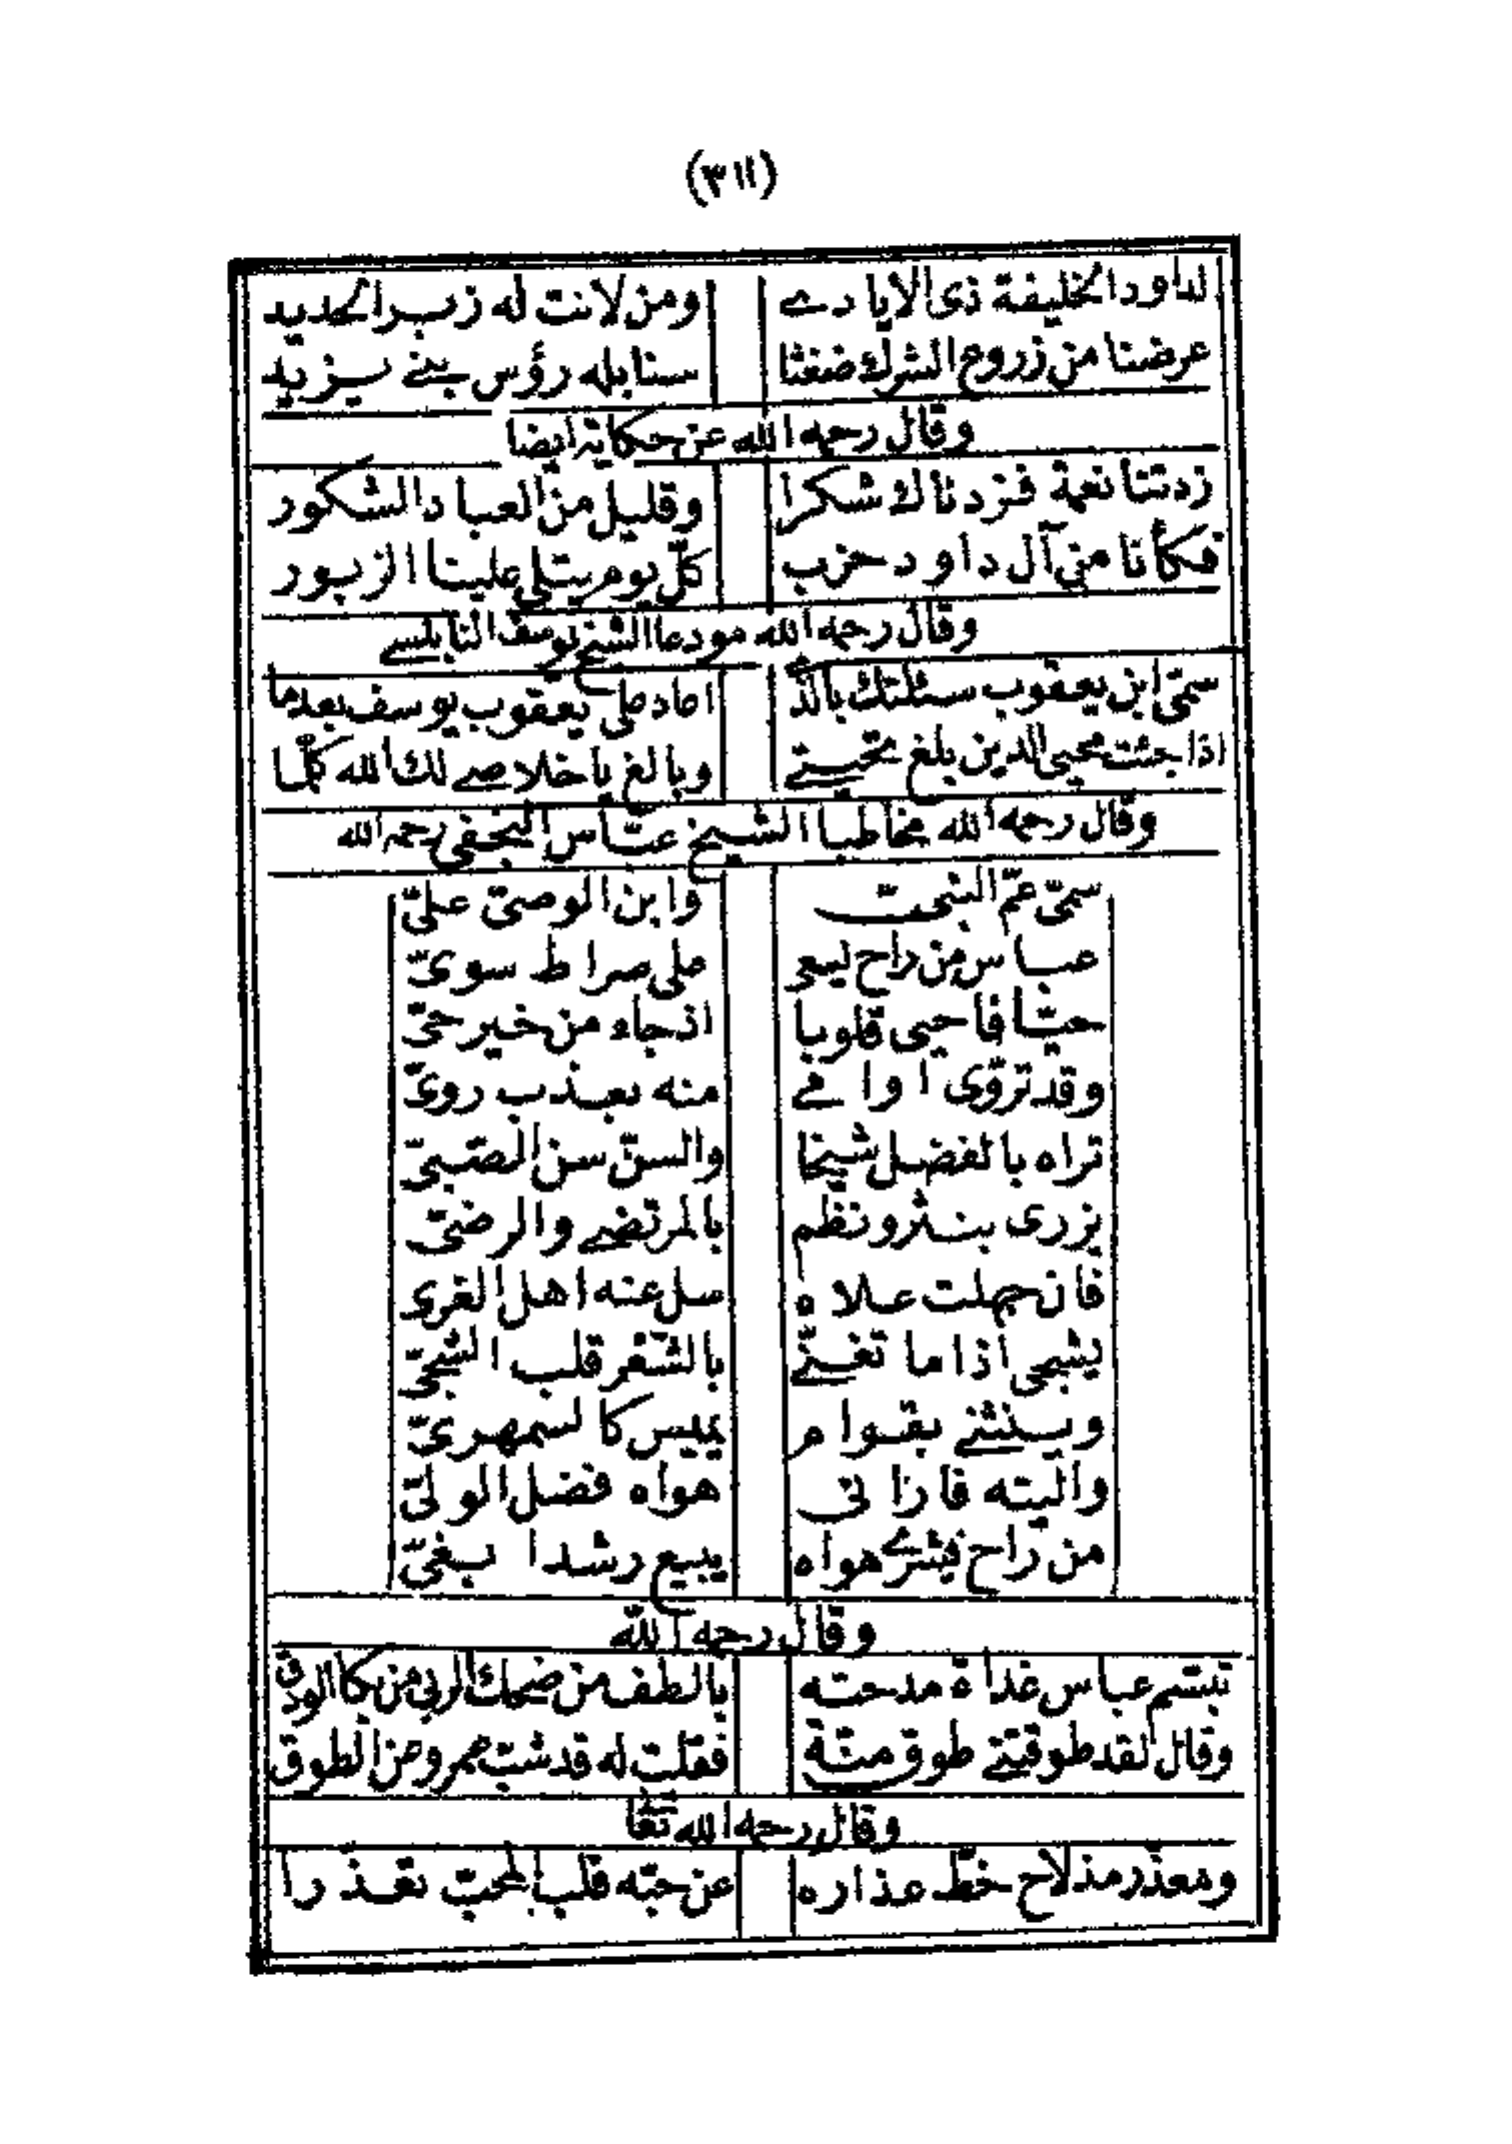 (٣١١)
لداود الخليفة ذى الايادے ومن لانت له زبر الحديد
عرضنا من زروع الشرك ضغثا سنابله رؤس بنے يزيد
وقال رحمه الله عن حكاية ايضا
زدتنا نعمة فزدناك شكرا وقليل من العباد الشكور
فكأنا من آل داود حزب كلّ يوم يتلى علينا الزبور
وقال رحمه الله مودعا الشيخ يوسف النابلسے
سمّى ابن يعقوب سئلتك بالذ اعاد على يعقوب يوسف بعدما
اذا جئت محيى الدين بلغ تحيتے وبالغ باخلاصے لك الله كلّما
وقال رحمه الله مخاطبا الشيخ عبّاس النجفى رحمه الله
سمّى عمّ النبى وابن الوصىّ علىّ
عباس من راح يسعى على صراط سوىّ
حيّا فاحيى قلوبا اذ جاء من خير حىّ
وقد تروّى اوامے منه بعذب روىّ
تراه بالفضل شيخا والسنّ سن الصبىّ
يزرى بنثر ونظم بالمرتضے والرضىّ
فان جهلت علاه سل عنه اهل الغرى
يشجى اذا ما تغنّے بالشعر قلب الشجىّ
وينثنے بقوام يميس كالسمهرىّ
واليته فازانى هواه فضل الولىّ
من راح فيشرے هواه يبيع رشدا بغىّ
وقال رحمه الله
تبسّم عباس غداة مدحته بالطف من ضحك الربى من بكا الودق
وقال لقد طوقتنے طوق منّة فقلت له قد شبّ عمرو عن الطوق
وقال رحمه الله
ومعذّر مذ لاح خطّ عذاره عن حبّه قلب المحبّ تعذّرا